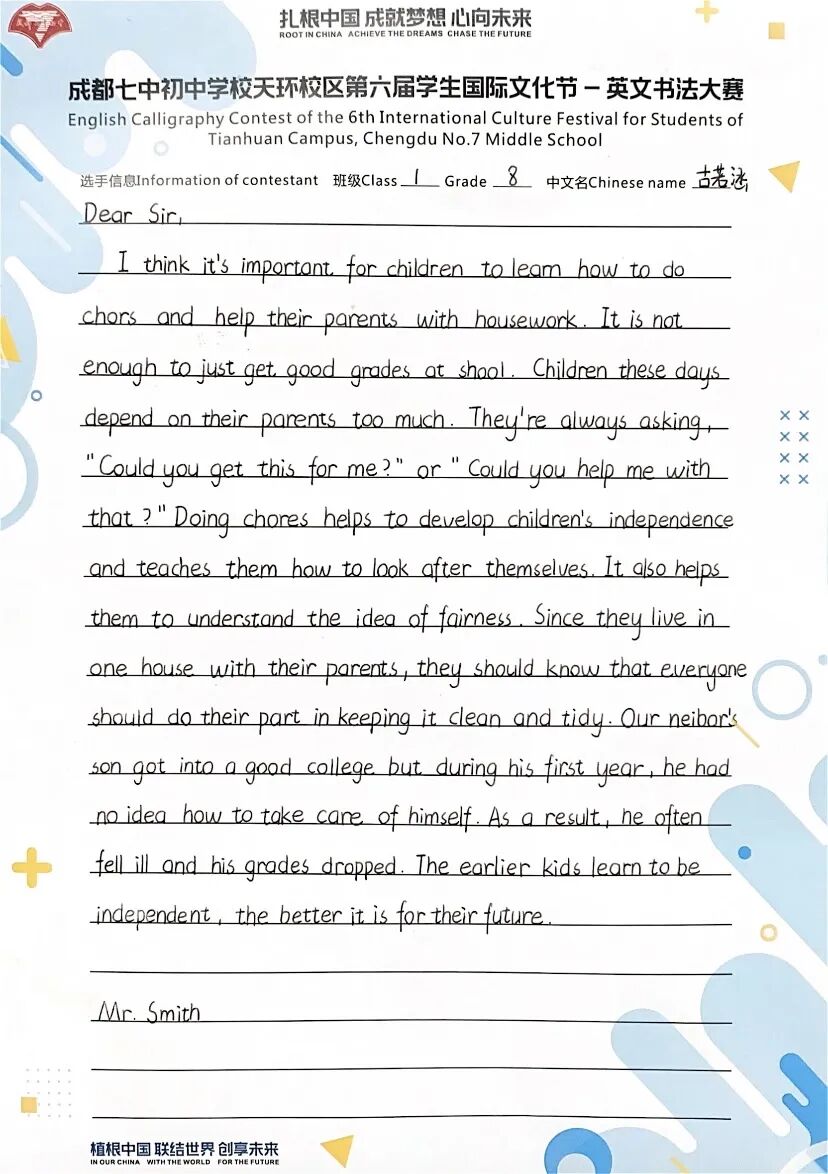 扎根中国 成就梦想 心向未来
ROOT IN CHINA ACHIEVE THE DREAMS CHASE THE FUTURE
成都七中初中学校天环校区第六届学生国际文化节 – 英文书法大赛
English Calligraphy Contest of the 6th International Culture Festival for Students of
Tianhuan Campus, Chengdu No.7 Middle School
选手信息Information of contestant 班级Class 1 Grade 8 中文名Chinese name 古若涵
Dear Sir,
I think it's important for children to learn how to do
chors and help their parents with housework. It is not
enough to just get good grades at shool. Children these days
depend on their parents too much. They're always asking,
"Could you get this for me?" or "Could you help me with
that?" Doing chores helps to develop children's independence
and teaches them how to look after themselves. It also helps
them to understand the idea of fairness. Since they live in
one house with their parents, they should know that everyone
should do their part in keeping it clean and tidy. Our neibor's
son got into a good college but during his first year, he had
no idea how to take care of himself. As a result, he often
fell ill and his grades dropped. The earlier kids learn to be
independent, the better it is for their future.
Mr. Smith
植根中国 联结世界 创享未来
IN OUR CHINA WITH THE WORLD FOR THE FUTURE